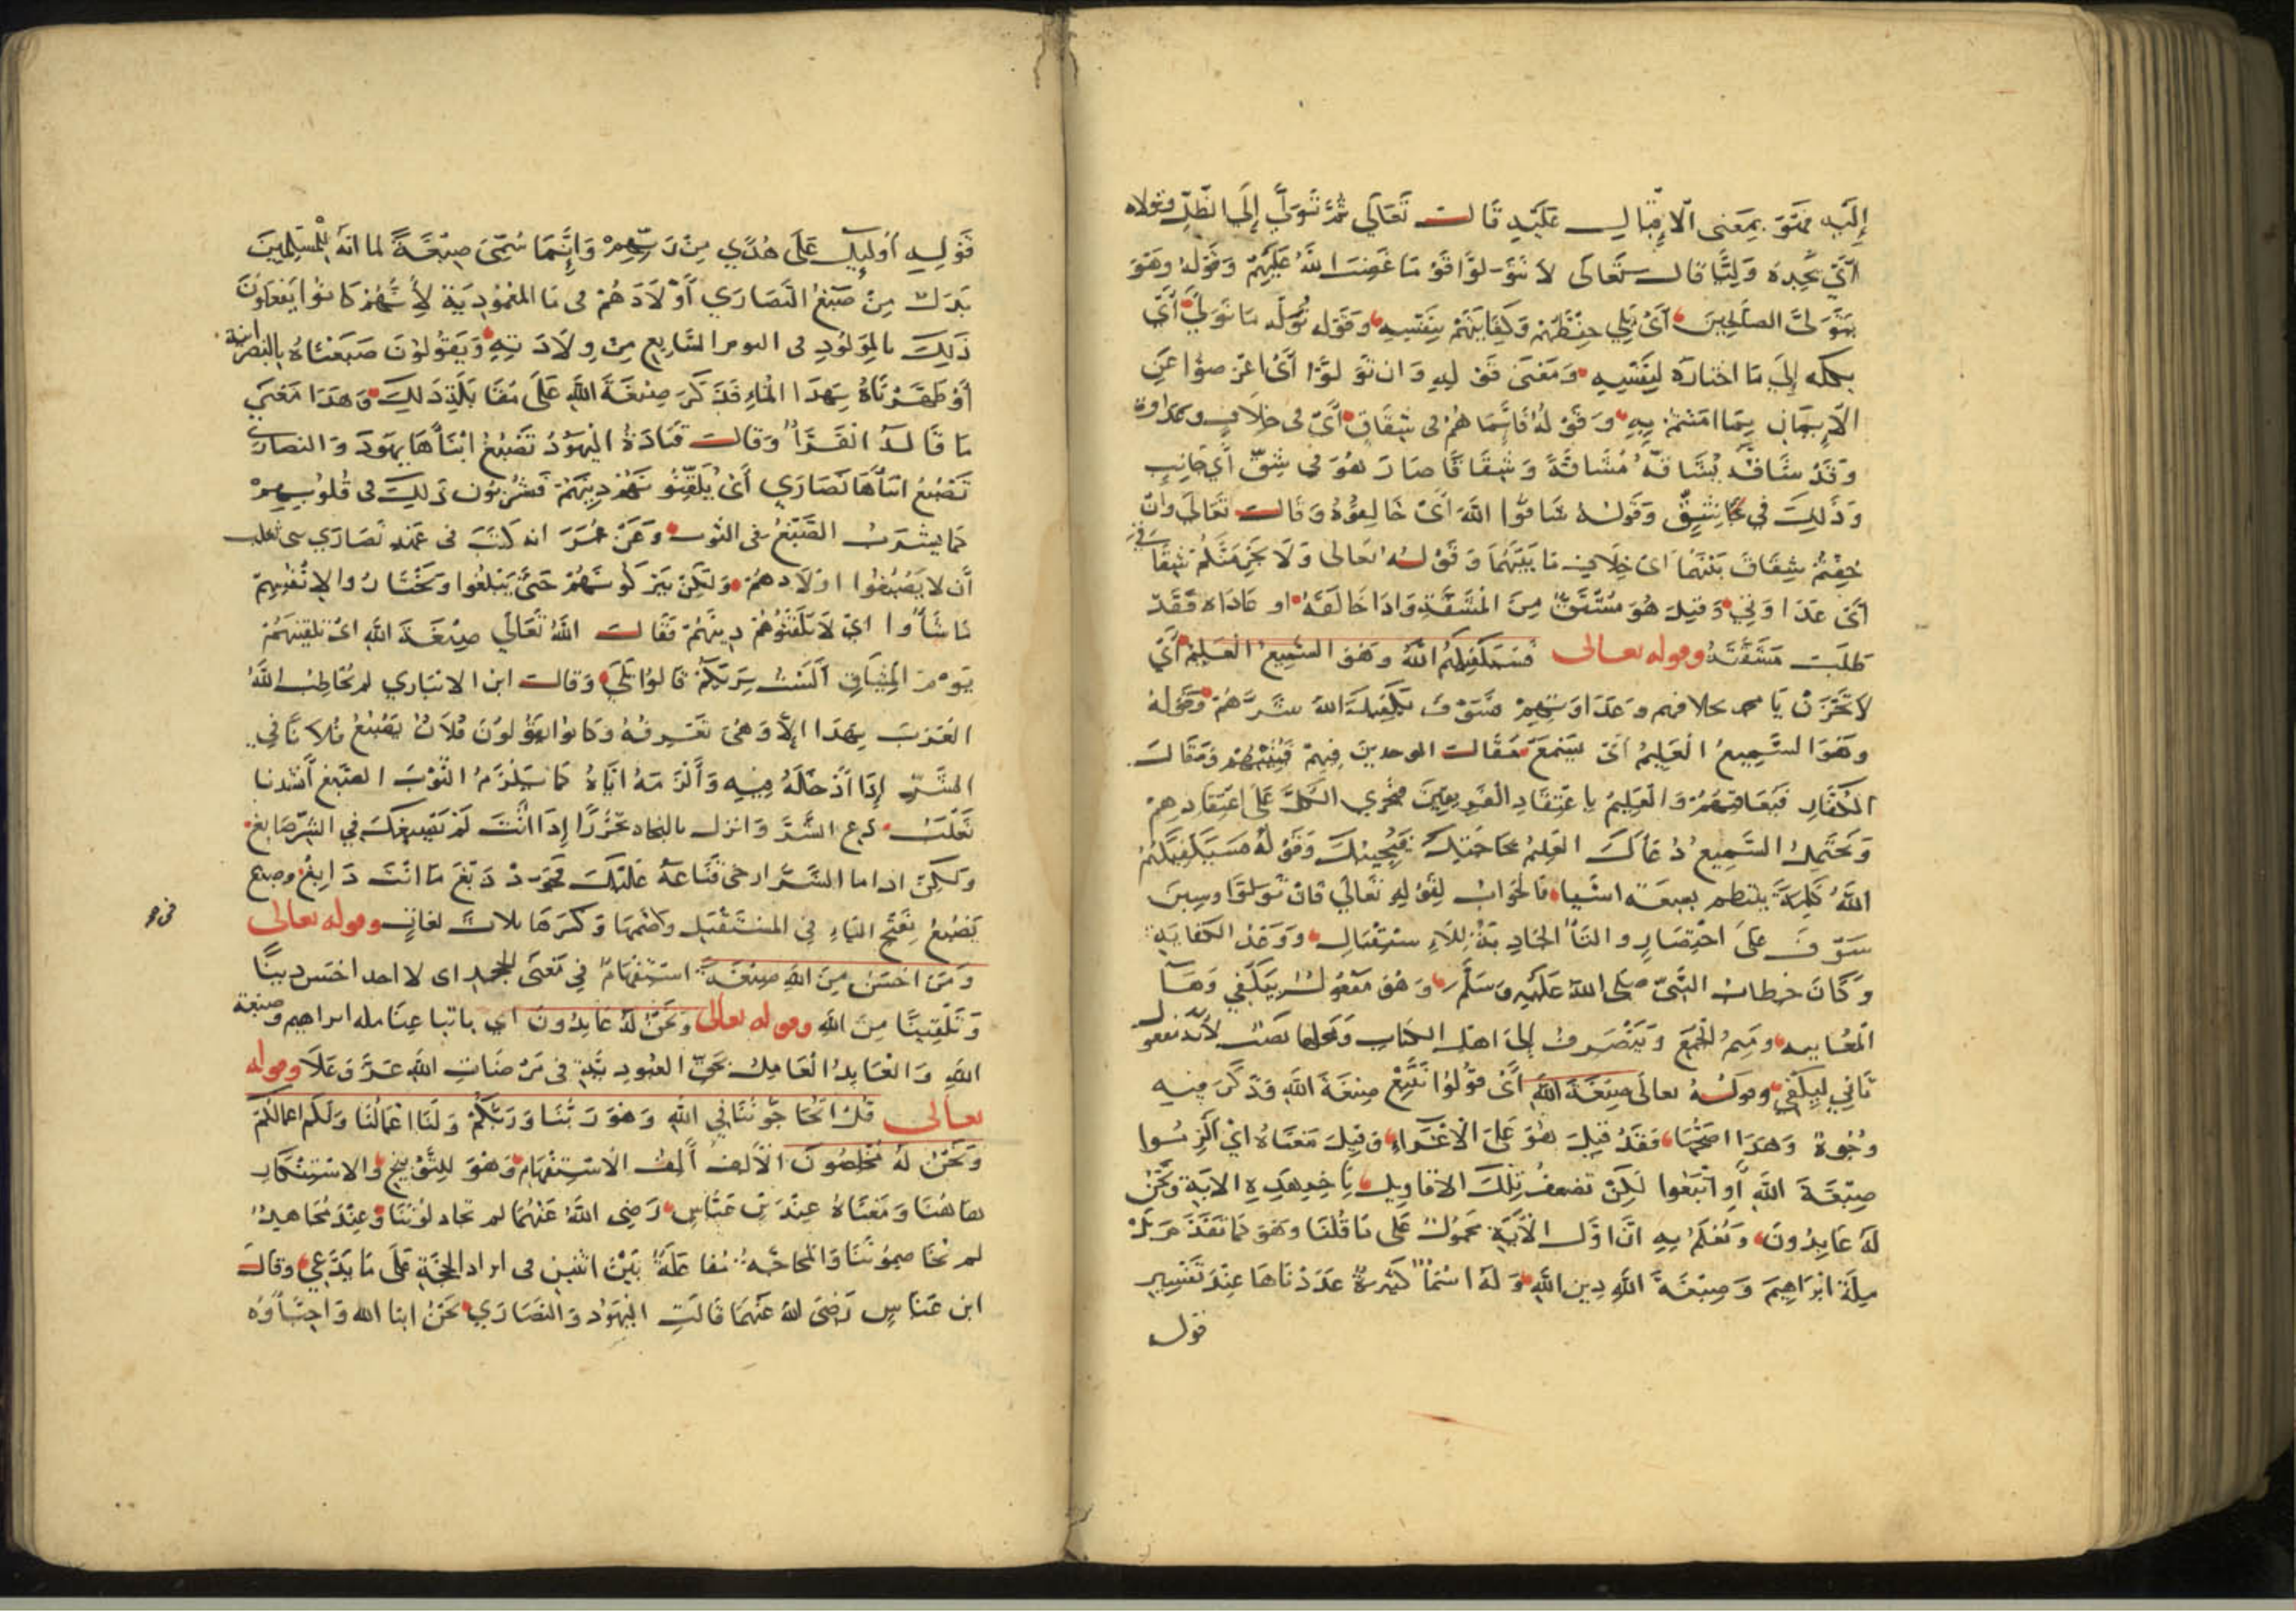 إليه فهو بمعنى الإقبال عليه قال تعالى ثم تولى إلى الظل وتولاه
أي يحبه ولينا قال تعالى لا تتولوا قوما غضب الله عليهم وقوله وهو
يتولى الصالحين أي يلي حفظهم وكفايتهم بنفسه وقوله نوله ما تولى أي
نكله إلى ما اختاره لنفسه ومعنى قوله وان تولوا أي اعرضوا عن
الإيمان بما امنتم به وقوله فإنما هم في شقاق أي في خلاف وعداوة
وقد شاقه يشاقه مشاقة وشقاقا صار هو في شق أي جانب
وذلك في شق وقوله شاقوا الله أي خالفوه وقال تعالى وان
خفتم شقاق بينهما اي خلاف ما بينهما وقوله تعالى ولا يجرمنكم شقاقي
أي عداوتي وقيل هو مشتق من المشقة واذا خالفه او عاداه فقد
طلب مشقته وقوله تعالى فسيكفيكهم الله وهو السميع العليم أي
لا تحزن يا محمد بخلافهم وعداوتهم فسوف يكفيك الله شرهم وقوله
وهو السميع العليم أي يسمع مقالة الموحدين فيهم فيثيبهم ومقالة
الكفار فيعاقبهم والعليم باعتقاد الفريقين فيجزي الكل على اعتقادهم
ويحتمل السميع دعاءك العليم بحاجتك فيجيبك وقوله فسيكفيكهم
الله كلمة ينتظم بصيغة اشياء فالجواب لقوله تعالى فان تولوا وسين
سوف على اختصار والتاء الخاد بدة للاستقبال ووعد الكفاية
وكان خطاب النبي صلى الله عليه وسلم وهو مفعول يكفي وها
المغايبه وميم الجمع وينصرف إلى اهل الكتاب ومحلها نصب لأنه مفعول
ثاني ليكفي وقوله تعالى صبغة الله أي قولوا نتبع صبغة الله وذكر فيه
وجوه وهذا اصحها فقد قيل هو على الإغراء وقيل معناه اي الزموا
صبغة الله أو اتبعوا لكن تضعف تلك الاقاويل بأخير هذه الاية ونحن
له عابدون ونعلم به ان اول الآية محمول على ما قلنا وهو كما تقدم بل
ملة ابراهيم وصبغة الله دين الله وله اسماء كثيرة عددناها عند تفسير
قوله
قوله أوليك على هدي من ربهم وإنما سمى صبغة لما انه للمسلمين
بدل من صبغ النصاري أولادهم في ما المعمودية لأنهم كانوا يفعلون
ذلك بالمولود في اليوم السابع من ولادته ويقولون صبغناه بالنصرانية
أو طهرناه بهذا الماء فذكر صبغة الله على مقابلة ذلك وهذا معنى
ما قاله الفراء وقال قتادة اليهود تصبغ ابناءها يهود والنصارى
تصبغ ابناءها نصاري أي يلقنونهم دينهم فيشربون ذلك في قلوبهم
كما يشرب الصبغ في الثوب وعن عمر انه كتب في عهد نصاري بني تغلب
أن لا يصبغوا اولادهم ولكن يتركونهم حتى يبلغوا ويختاروا لأنفسهم
ما شاؤوا اي لا يلقنوهم دينهم فقال الله تعالى صبغة الله اي تلقينهم
يوم الميثاق ألست بربكم قالوا بلى وقال ابن الانباري لم يخاطب الله
العرب بهذا إلا وهي تعرفه وكانوا يقولون فلان يصبغ فلانا في
الشر إذا أدخله فيه وألزمه اياه كما يلزم الثوب الصبغ أنشدنا
ثعلب دع الشر وانزل بالنجاة تحرزا إذا أنت لم يصبغك في الشر صابغ
ولكن اذا ما الشر ارخى قناعه عليك فجود دبغ ما انت دابغ وصبغ
يصبغ بفتح الباء في المستقبل وضمها وكسرها ثلاث لغات وقوله تعالى
ومن احسن من الله صبغة استفهام في معنى الجحد اي لا احد احسن دينا
وتلقينا من الله وقوله تعالى ونحن له عابدون اي باتباعنا ملة ابراهيم وصبغة
الله والعابد العامل بحق العبودية في مرضات الله عز وعلا وقوله
تعالى قل اتحاجوننا في الله وهو ربنا وربكم ولنا اعمالنا ولكم اعمالكم
ونحن له مخلصون الألف ألف الاستفهام وهو للتوبيخ والاستنكار
هاهنا ومعناه عند بن عباس رضي الله عنهما لم تجادلوننا وعند مجاهد
لم تخاصموننا والمحاجه مفاعلة بين اثنين في ايراد الحجة على ما يدعي وقال
ابن عباس رضي الله عنهما قالت اليهود والنصاري نحن ابنا الله واحباؤه